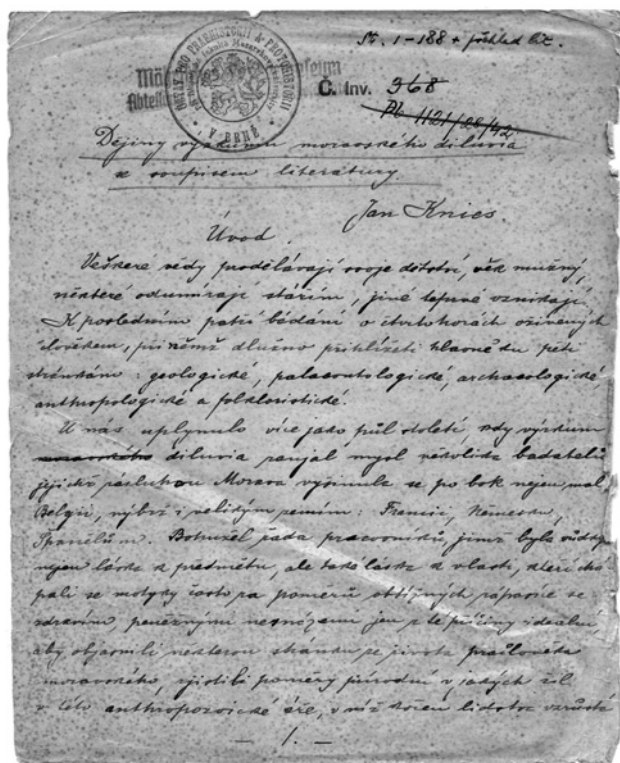 Str. 1-188 + přehled lit.
ÚSTAV PRO PRAEHISTORII & PROTOHISTORII
V BRNĚ
Č. Inv. 368
Pb 1121/28/42
Dějiny výzkumu moravského diluvia
se soupisem literatury.
Jan Knies.
Úvod.
Veškere vědy prodělávají svoje dětství, věk mužný,
některé odumírají stářím, jiné teprve vznikají.
K posledním patří bádání o čtvrtohorách oživených
člověkem, při němž dlužno přihlížeti hlavně ku pěti
stránkám: geologické, palaeontologické, archaeologické
anthropologické a folkloristické.
U nás uplynulo více jako půl století, kdy výzkum
moravského diluvia zaujal mysl několika badatelů
jejichž zásluhou Morava vyšinula se po bok nejen malé
Belgii, nýbrž i velikým zemím: Francii, Německu,
Španělům. Bohužel řada pracovníků, jimž byla vůdkyní
nejen láska k předmětu, ale také láska k vlasti, kteří cho
pali se motyky často za poměrů obtížných zápasíce se
zdravím, peněžnými nesnázemi jen z té příčiny ideální,
aby objasnili některou stránku ze života pračlověka
moravského, zjistili poměry přírodní v jakých žil
v této anthropozoické éře, v níž kořen lidstva vzrůstá
— 1. —